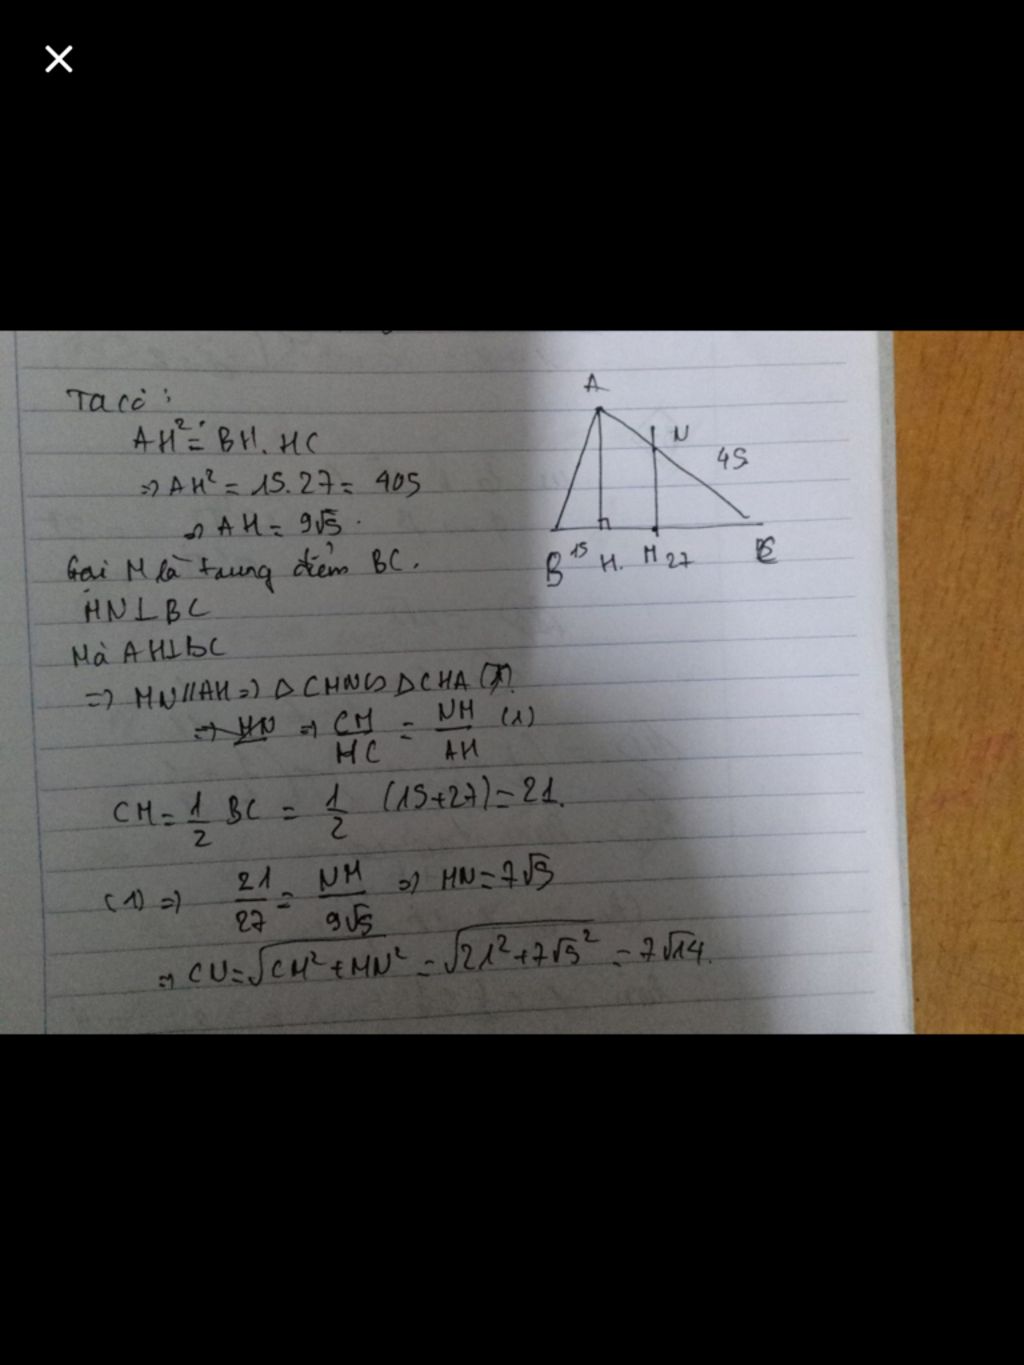 Ta có :
AH² = BH. HC
=> AH² = 15.27 = 405
=> AH = 9√5.
Gọi M là trung điểm BC.
MN⊥BC
Mà AH⊥BC
=> MN//AH => Δ CMN∽ΔCHA
=> MN => CM/HC = NM/AH (1)
CM = 1/2 BC = 1/2 (15+27) = 21.
(1) => 21/27 = NM/9√5 => MN = 7√5
=> CN = √CM² + MN² = √21² + 7√5² = 7√14.
A
N
45
B 15 H. M 27 C